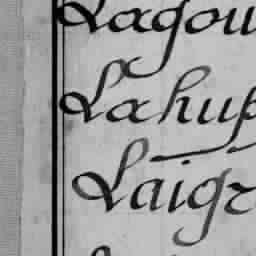 Lagou
Lahup
Laigr